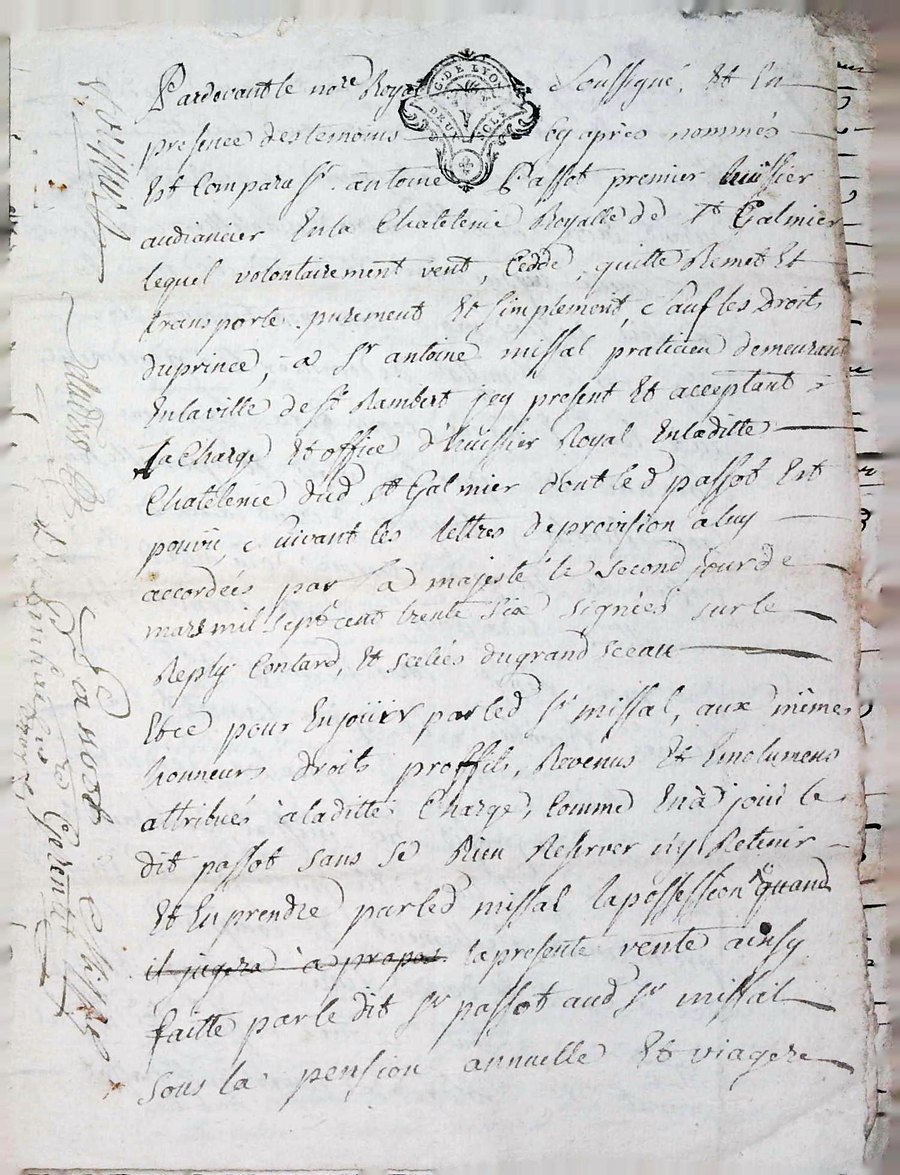 Pardevant le nore Royal Soussigné, Et En
G. DE LYON
DEUX SOLS
presence des temoins cy après nommés
Est Compara Sr. antoine Passot premier huissier
audiancier En la Chatelenie Royalle de St Galmier
lequel volontairement vent, Cedde, quitte Remet Et
transporte purement Et Simplement, Sauf les Droits
du prince, a Sr antoine missal praticien demeurant
En la ville de St Rambert icy present Et acceptant
la Charge Et office d'huissier Royal En laditte
Chatelenie dud St Galmier dont led passot Est
pouvû, Suivant les lettres de provision a luy
accordées par Sa majesté le Second jour de
mars mil Sept cent trente Six Signées sur le
Reply Contard, Et scelées du grand Sceau
Et ce pour En jouir par led Sr missal, aux mêmes
honneurs droits proffits, Revenus Et Emolumens
attribués à laditte Charge, Comme En a joüi le
dit passot sans se Rien Reserver n'y Retenir
Et En prendre par led missal la possession quand
il jugera à propos la presente vente ainsy
faitte par le dit Sr passot aud Sr missal
sous la pension annuelle Et viagere